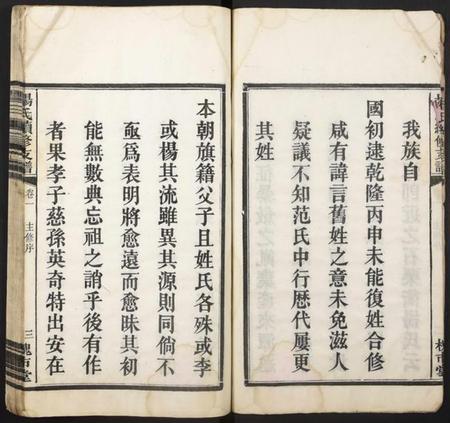 我族自
國初逮乾隆丙申未能復姓合修
咸有諱言舊姓之意未免滋人
疑議不知范氏中行歷代屢更
其姓
本朝旗籍父子且姓氏各殊或李
或楊其流雖異其源則同倘不
亟爲表明將愈遠而愈昧其初
能無數典忘祖之誚乎後有作
者果孝子慈孫英奇特出安在
楊氏續修支譜
卷一
主修序
三槐堂